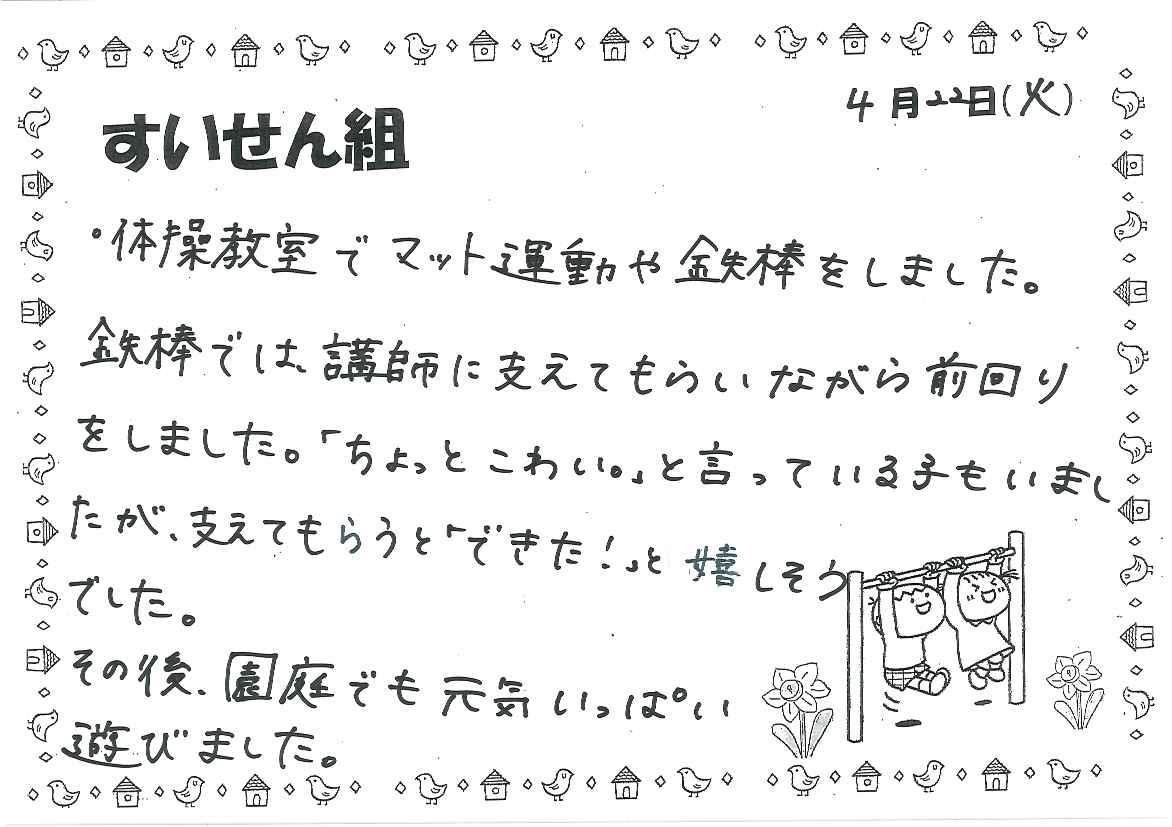 4月22日(火)
すいせん組
・体操教室でマット運動や鉄棒をしました。
鉄棒では、講師に支えてもらいながら前回り
をしました。「ちょっとこわい。」と言っている子もいまし
たが、支えてもらうと「できた！」と嬉しそう
でした。
その後、園庭でも元気いっぱい
遊びました。